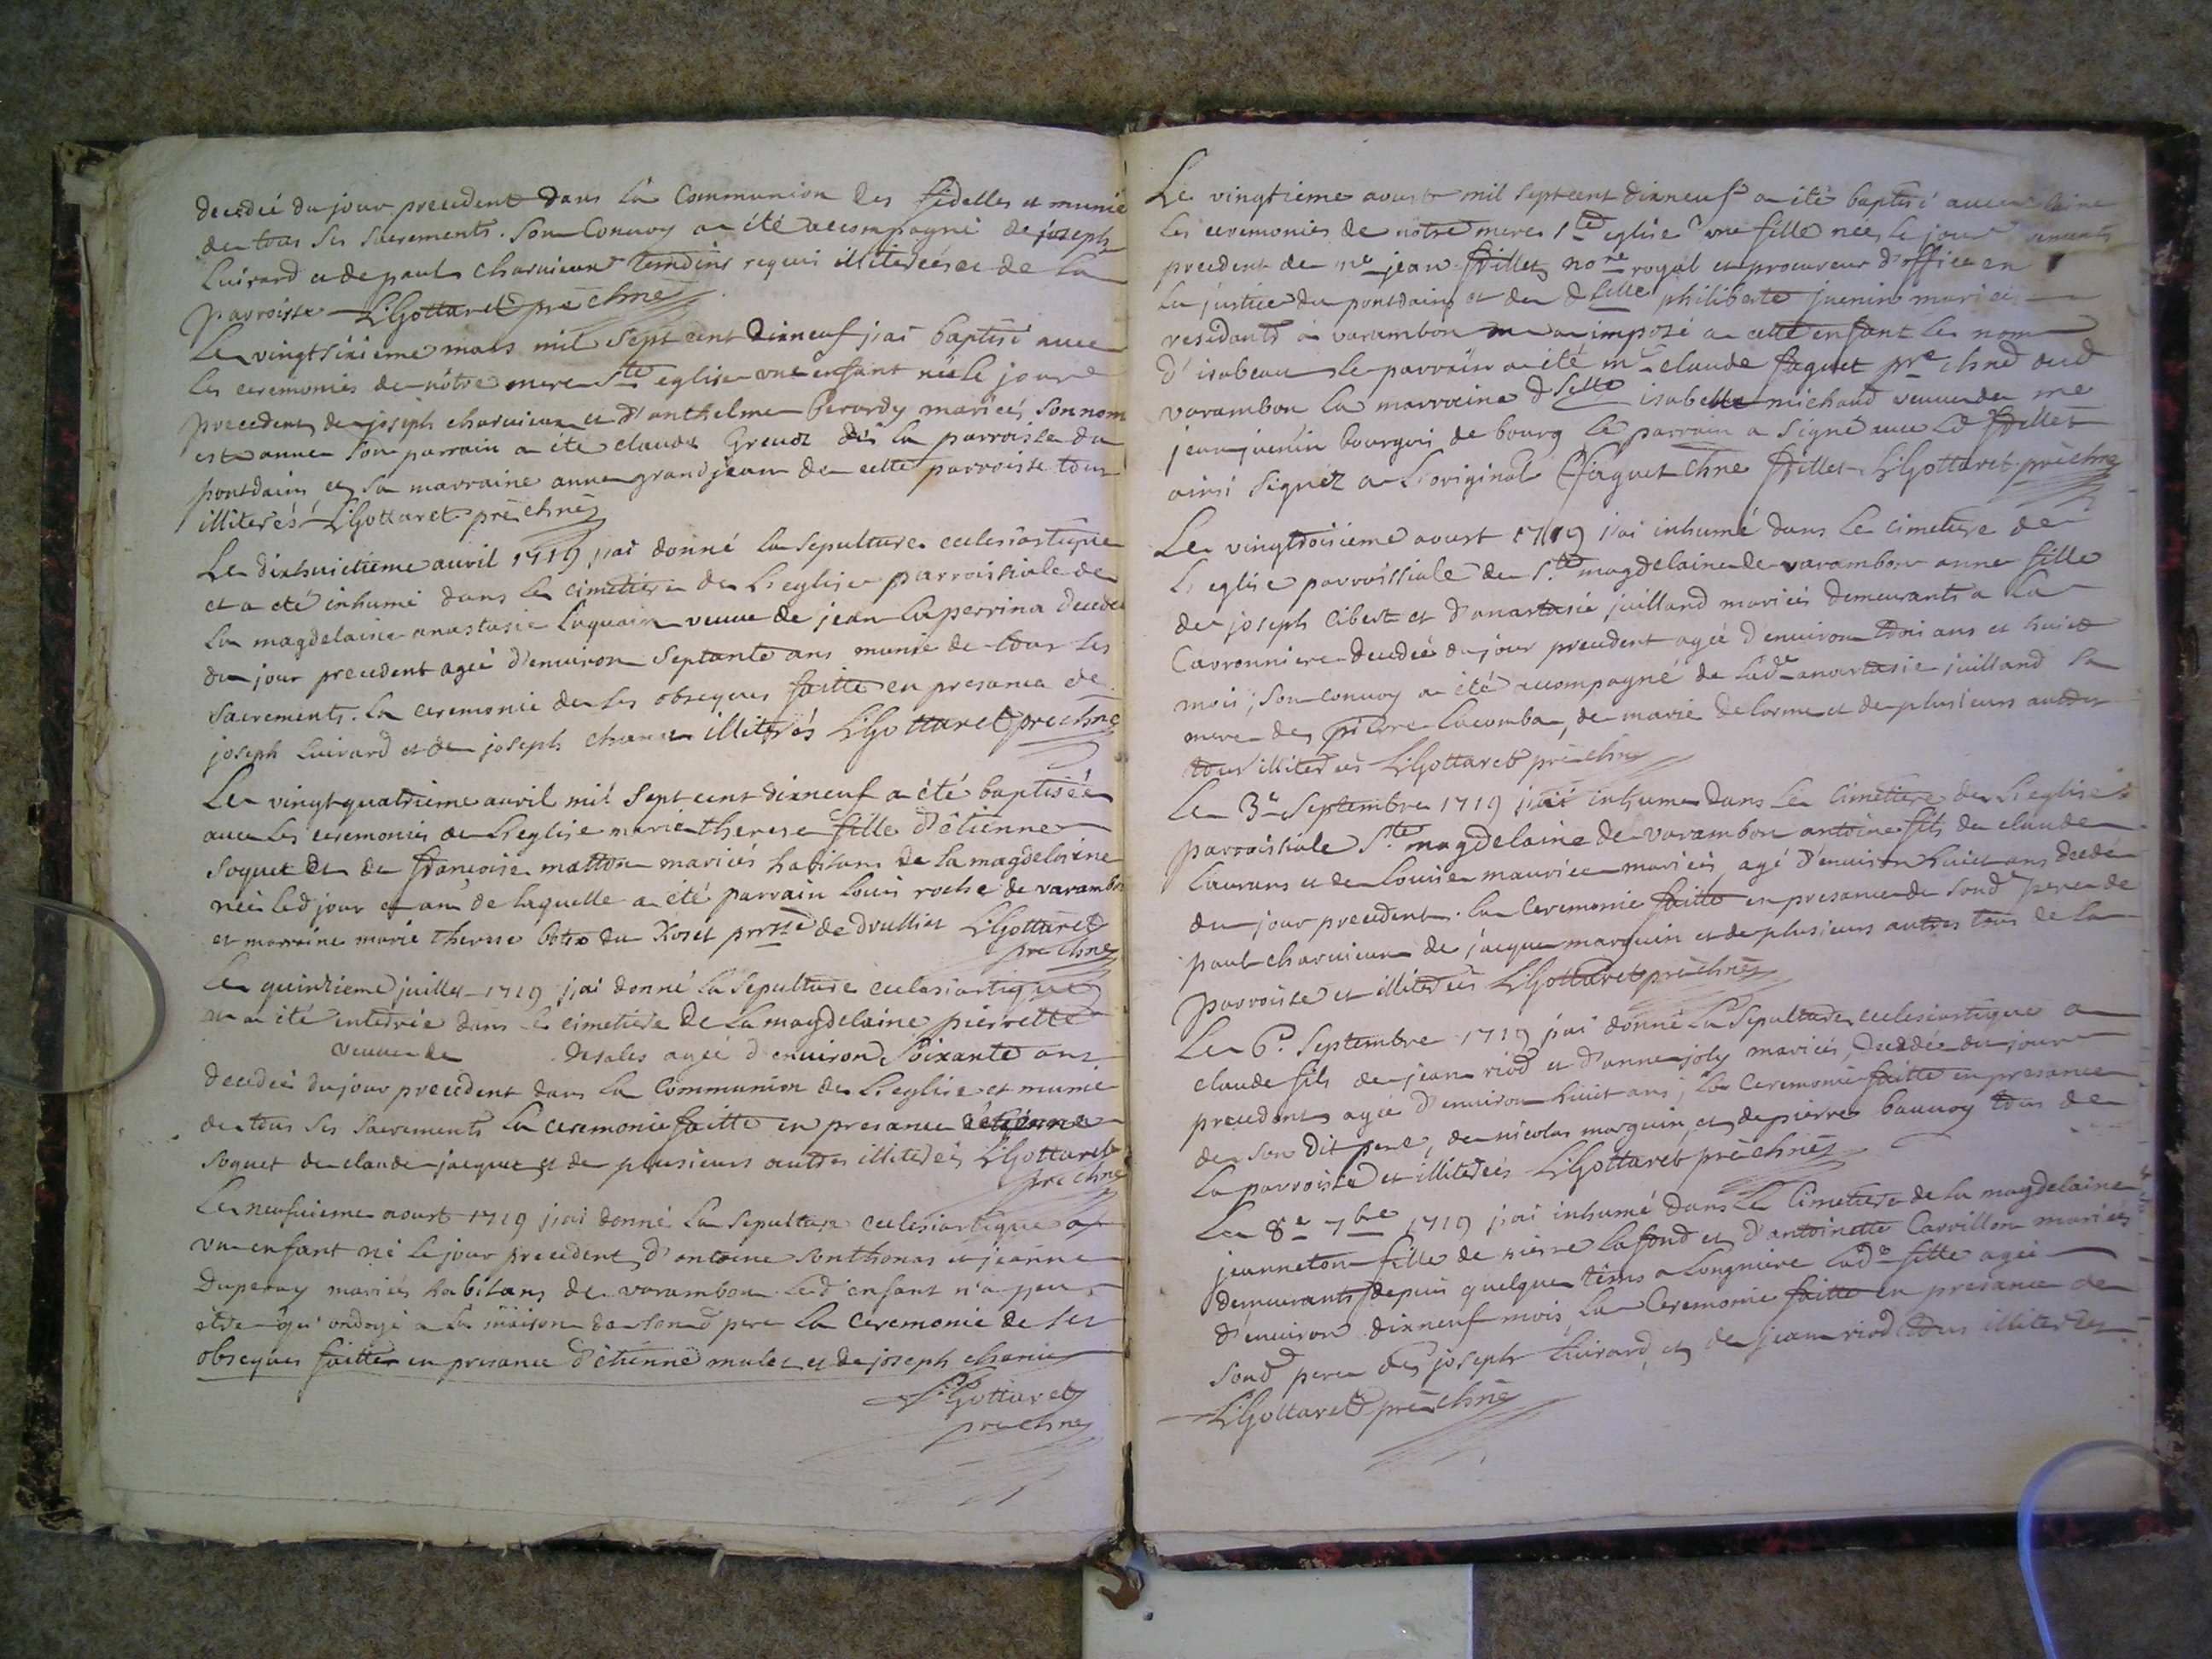 decedeé du jour precedent dans la Communion des fidelles et munie
de tous ses sacrements. Son Convoy a été accompagné de joseph
Luirard et de paul charuieux temoins requis illiterées et de la
parroisse LGottaret pre chne
Le vingtsixieme mars mil sept cent dixneuf j'ai baptisé avec
les ceremonies de nôtre mere Ste eglise une enfant née le jour
precedent de joseph charuieux et d'anthelme Berardy mariés, Son nom
est anne son parrain a été claude Greuoz de la parroisse du
pontdains et sa marraine anne grandjean de cette parroisse tous
illiterés LGottaret pre chne
Le dixhuictieme auril 1719 j'ai donné la sepulture eclesiastique
et a eté inhumé dans le cimetiere de L'eglise parroissiale de
la magdelaine anastasie Luquain veuue de jean Laperrina decedé
du jour precedent ageé d'enuiron septante ans munie de tous les
sacrements. La ceremonie de ses obseques faitte en presance de
joseph Luirard et de joseph illiterés LGottaret pre chne
Le vingtquatrieme auril mil sept cent dixneuf a été baptiseé
auec les ceremonies de L'eglise marie therese fille d'étienne
soquet et de françoise matton mariés habitans de la magdelaine
neé led jour et an de laquelle a été parrain Louis roche de varambon
et marraine marie therese du Roset prrsse de druillet LGottaret
pre chne
Le quinzieme juillet 1719 j'ai donné la sepulture eclesiastique
a été interreé dans le cimetiere de La magdelaine pierrette
veuue de desales ageé d'enuiron soixante ans
decedeé du jour precedent dans la communion de L'eglise et munie
de tous ses sacrements la ceremonie faitte en presance d'etienne
soquet de claude jacquet et de plusieurs autres illiterés LGottaret
pre chne
Le neufuieme aoust 1719 j'ai donné la sepulture eclesiastique a
un enfant né le jour precedent d'antoine sonthonas et jeanne
Duperay mariés habitans de varambon led enfant n'a peu
etre qu'ondoyé a la maison de sond pere La ceremonie de ses
obseques faitte en presance d'étienne mulet et de joseph
LGottaret
pre chne
Le vingtieme aoust mil septcent dixneuf a été baptisé auec
les ceremonies de notre mere Ste eglise une fille neé le jour
precedent de me jean fillet nore royal et procureur d'office en
la justice du pontdains et de delle philiberte juenin mariés
residants a varambon a imposé a cette enfant le nom
d'isabeau le parrain a été me claude faguet pre chne dud
varambon la marraine dlle isabelle michaud veuue de me
jean juenin bourgois de bourg le parrain a signé auec led fillet
ainsi signez a L'original faguet chne fillet LGottaret pre chne
Le vingtroisieme aoust 1719 j'ai inhumé dans le cimetiere de
L'eglise parroissiale de Ste magdelaine de varambon anne fille
de joseph Cibert et d'anastasie juilland mariés demeurants a La
Cavronniere decedeé du jour precedent ageé d'enuiron trois ans et huict
mois, son conuoy a été accompagné de Lade anastasie juilland sa
mere de pierre Lacomba, de marie delorme et de plusieurs autres
tous illiterés LGottaret pre chne
Le 3e Septembre 1719 j'ai inhumé dans le cimetiere de L'eglise
parroissiale Ste magdelaine de varambon antoine fils de claude
Laurans et de Louise maurice mariés, agé d'enuiron huict ans decedé
du jour precedent. la ceremonie faitte en presance de sond pere de
paul charuieux de jacque marguin et de plusieurs autres tous de la
parroisse et illiterés LGottaret pre chne
Le 6e Septembre 1719 j'ai donné la sepulture eclesiastique a
claude fils de jean riod et d'anne joly mariés, decedée du jour
precedent ageé d'enuiron huict ans, la ceremonie faitte en presance
de son dit pere, de nicolas marguin et de pierre bauuoy tous de
la parroisse et illiterés LGottaret pre chne
Le 8e 7bre 1719 j'ai inhumé dans le Cimetiere de la magdelaine
jeanneton fille de pierre Lafond et d'antoinette Carrillon mariés
demeurants depuis quelque tems a Longniere Lade fille ageé
d'enuiron dixneuf mois, La Ceremonie faitte en presance de
sond pere de joseph Luirard et de jean riod tous illiterés
LGottaret pre chne